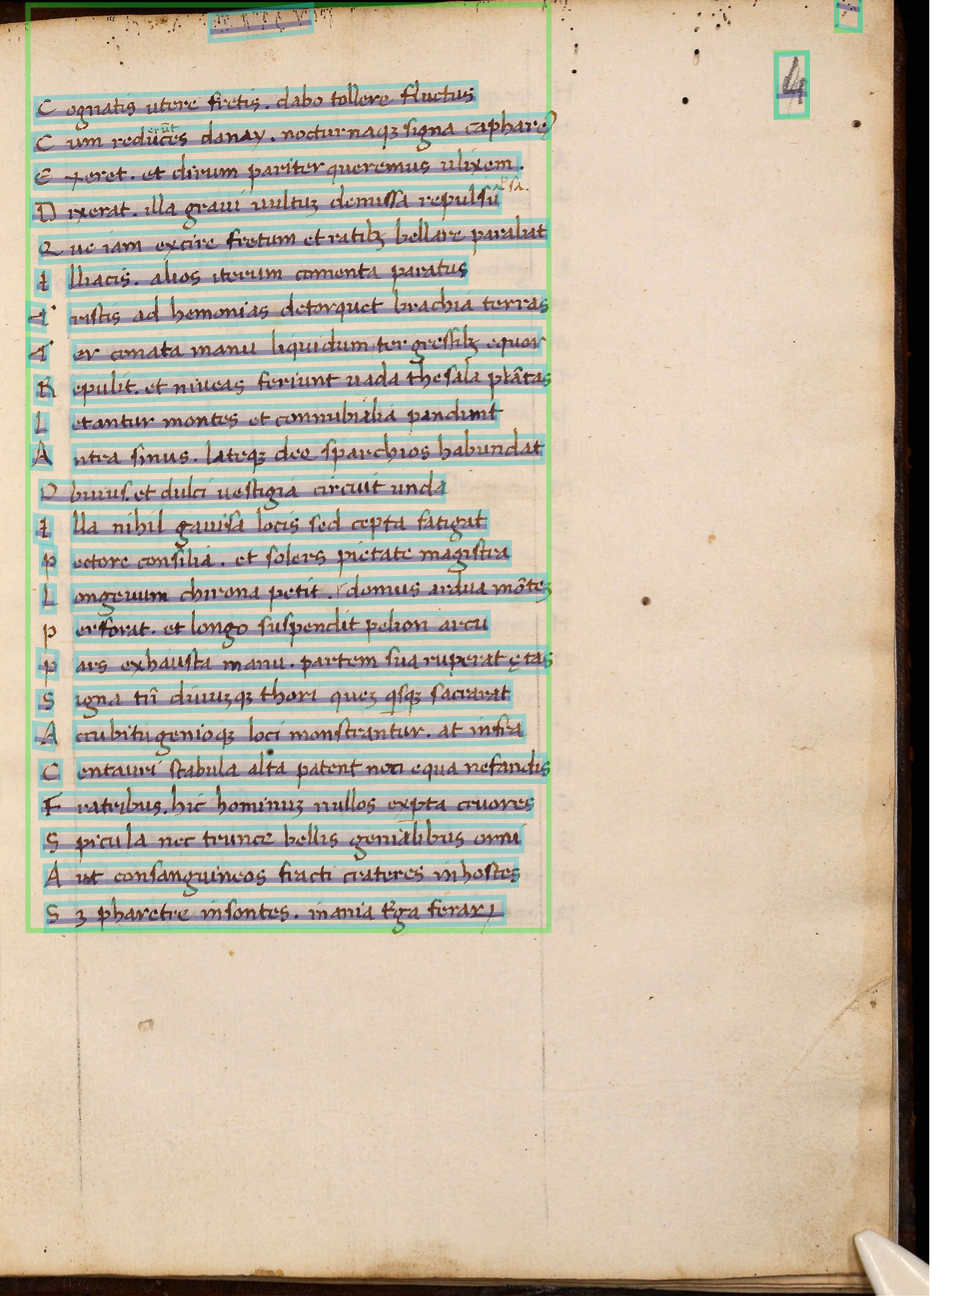 4
C ognatis utere fretis . dabo tollere fluctus
C um reduces danay . nocturnaqꝫ signa capharę
E xeret . et dirum pariter queremus ulixem .
D ixerat . illa graui uultuꝫ demissa repulsū
Q ue iam excire fretum et ratibꝫ bellare parabat
I lliacis . alios iterum comenta paratus
T ristis ad hemonias detorquet brachia terras
T er conata manu liquidum ter gressibꝫ equor
R epulit . et niueas feriunt uada thesala plātas
L etantur montes et connubialia pandunt
A ntra sinus . lateqꝫ deę sparchios habundat
O buius . et dulci uestigia circuit unda
I lla nihil gauisa locis sed cepta fatigat
P ectore consilia . et solers pietate magistra
L ongeuum chirona petit . domus ardua mōteꝫ
P erforat . et longo suspendit pelion arcu
P ars exhausta manu . partem sua ruperat ętas
S igna tn̄ diuuꝫqꝫ thori queꝫ qisqꝫ sacrarat
A ccubitu genioqꝫ loci monstrantur . at infra
C entauri stabula alta patent non equa nefandis
F ratribus . hic hominuꝫ nullos expta cruores
S picula nec trunce bellis genialibus orni
A ut consanguineos fracti crateres in hostes
S ꝫ pharetre insontes . inania t̄ga ferarꝝ